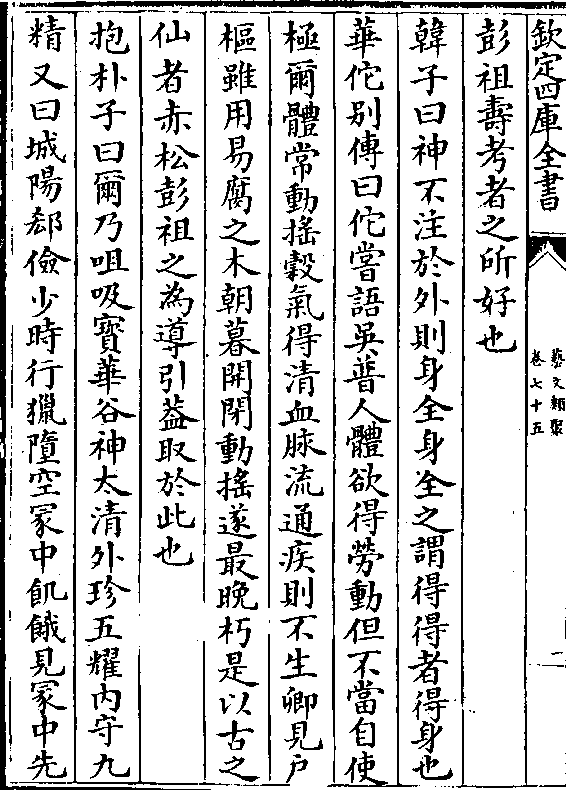 欽定四庫全書
藝文類聚
卷七十五
二
彭祖壽考者之所好也
韓子曰神不注於外則身全身全之謂得得者得身也
華佗别傳曰佗嘗語吳普人體欲得勞動但不當自使
極爾體常動摇糓氣得清血脉流通疾則不生卿見户
樞雖用易腐之木朝暮開閉動摇遂最晚朽是以古之
仙者赤松彭祖之為導引葢取於此也
抱朴子曰爾乃咀吸寳華谷神太清外珍五耀内守九
精又曰城陽郄儉少時行獵墮空冢中飢餓見冢中先